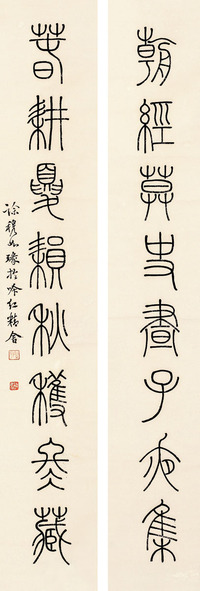 朝經莫史晝子夜集
春耕夏耘秋穫冬藏
徐穆如瑑於吟紅精舍